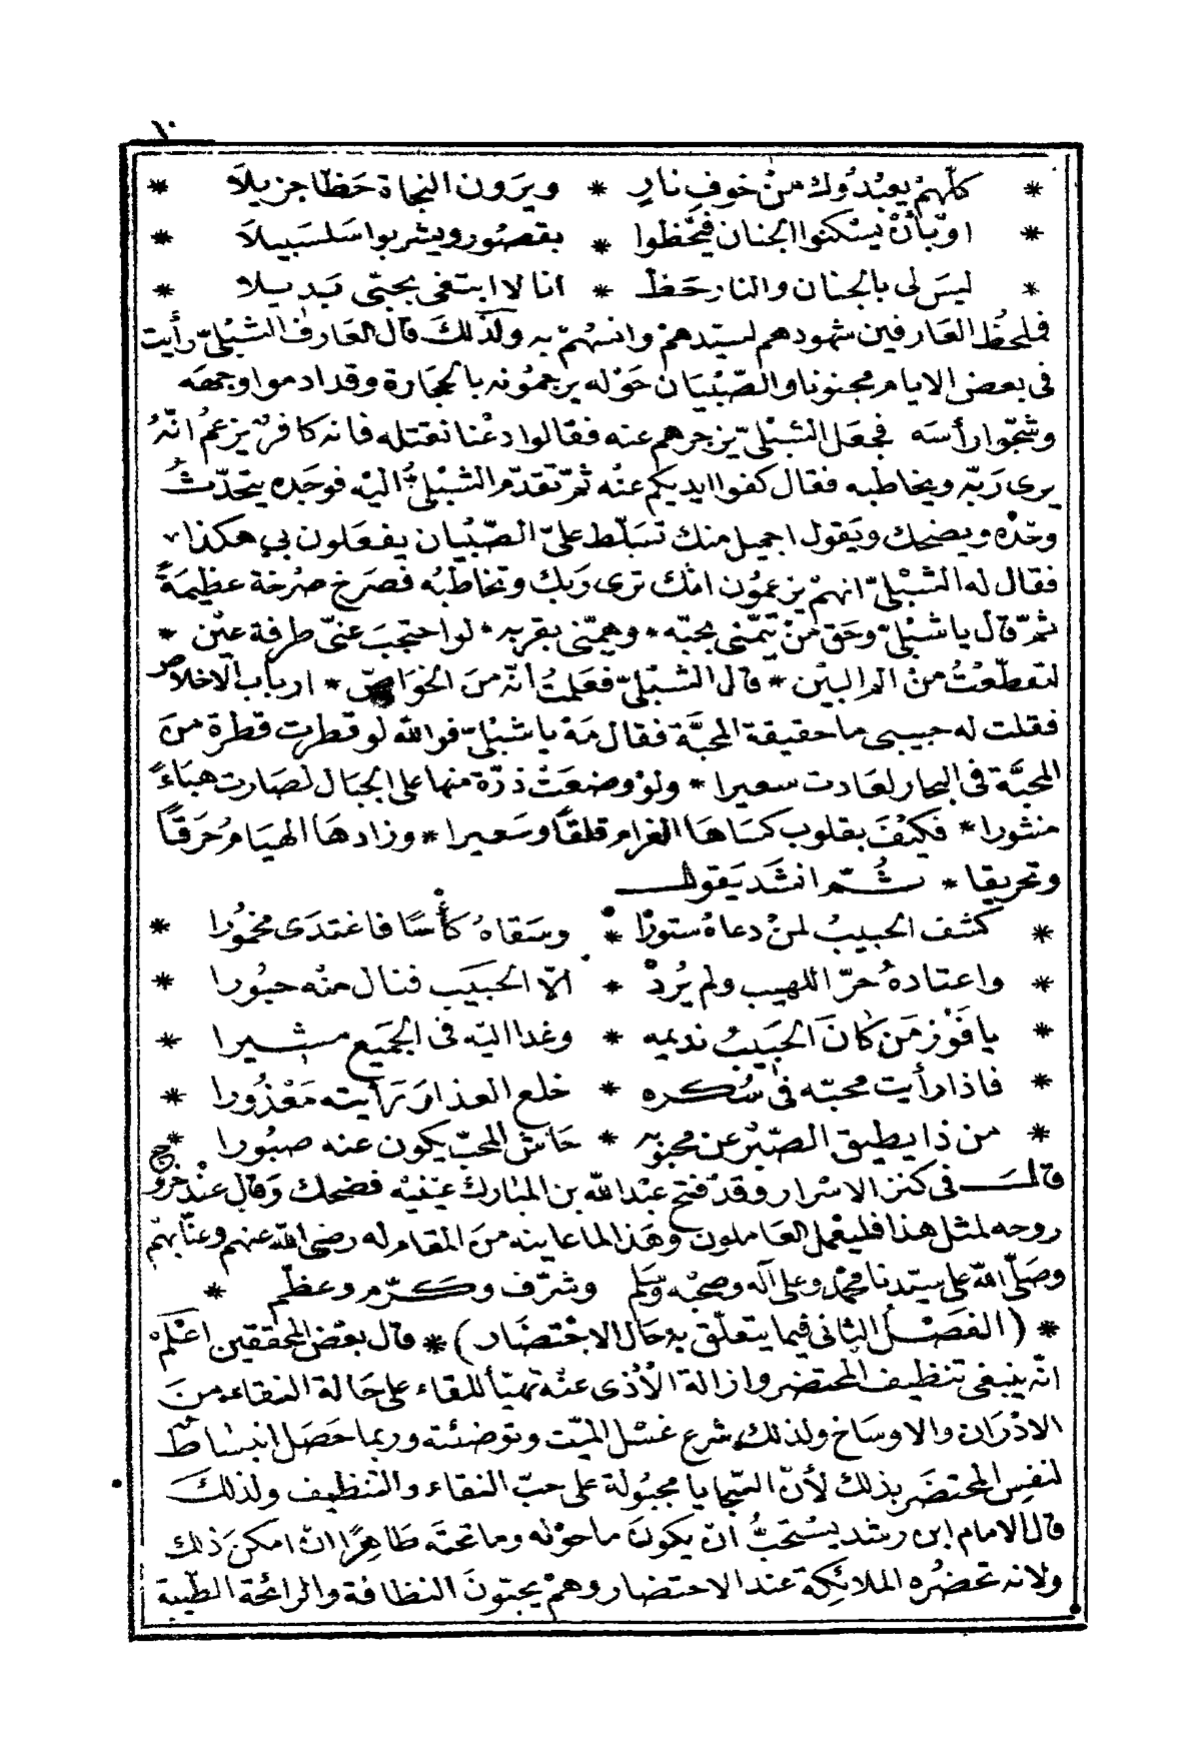 ١٠
* كلّهمْ يعبُدُوك منْ خوفِ نارٍ * ويرَون النجاة حَظّا جزيلاَ *
* او بأنْ يسْكنوا الجنان فيَحْظوا * بقصُور ويشربوا سَلسَبيلاَ *
* ليسَ لى بالجنان والنار حَظ * انا لا ابتغى بحبّى بَديلا *
فلحظُ العارفين شهودهم لسيّدهمْ وانسُهمْ به ولذلكَ قال العارف الشبْلىّ رأيت
فى بعض الايام مجنونا والصّبْيَان حَوْله يرجمُونه بالحجَارة وقد ادموا وجهَه
وشجّوا رأسَه فجعَل الشبْلىّ يزجرهم عنه فقالوا دعْنا نقتله فانه كافرٌ يزعمُ انّهُ
يرى رَبّه ويخاطبه فقال كفوا ايديكم عنْه ثمّ تقدّم الشبْلىُّ اليْه فوجَده يتحَدّثُ
وحْدْه ويضحك ويَقول اجميل منك تسَلّط علىّ الصّبْيان يفعَلون بى هكذا
فقال له الشبْلىّ انهمْ يزعمُون انك ترى رَبك وتخاطبُه فصَرخ صرْخة عظيمَةً
ثمّ قال يا شبْلىّ وحَق منْ تيّمنى بحبّه * وهيمّنى بقربه * لو احتجبَ عنىّ طرفة عيْن *
لتقطّعْتُ منْ الم البيْن * قال الشبْلىّ فعَلمْتُ انّه منَ الخوَاصّ * ارباب الاخلاص
فقلت له حبيبى ما حقيقة المحبَّة فقال مَهْ يا شبْلىّ فوالله لو قطرت قطرة منَ
المحبَّة فى البحار لعَادت سعيرا * ولوْ وضعَتْ ذرّة منها على الجبَال لصَارت هبَاءً
منثورا * فكيْفَ بقلوب كسَاهَا الغرام قلقاً وسَعيرا * وزادهَا الهيَام حُرَقاً
وتحريقا * ثُمّ انشَد يَقول
* كشف الحبيبُ لمنْ دعاهُ ستورًا * وسَقاهُ كأسًا فاغتدَى مخمُورا *
* واعتادهُ حرّ اللهيب ولم يُردْ * الّا الحبَيبَ فنال منْه حبُورا *
* يا فَوْز مَن كانَ الحَبيبُ نديمه * وغدا اليْه فى الجَميع مشيرا *
* فاذا رأيت محبّه فى سُكره * خلع العذارَ رَأيته مَعْذُورا *
* من ذا يطيق الصّبْر عن محبوبه * حَاش المحبّ يكون عنه صبُورا *
قال فى كنز الاسْرار وقدْ فتح عبْد الله بن المبَارك عيْنيْه فضحك وَقال عنْدَ خروج
روحه لمثل هذا فليعْمل العَاملون وهَذا لما عاينه منَ المقام له رضى الله عنهم وعنّا بهمْ
وصَلّى الله على سيّدنا محمّد وعلى آله وصحْبه وسَلم وشرّف وكَرّم وعظّم *
* ( الفصْل الثانى فيما يتعلّق به حَال الاحْتضَار ) * قال بعْض المحققين اعْلمْ
انّه ينبغى تنظيف المحتضر وازالة الأذى عنْه تهيّأ للقاء على حَالة النقاء منَ
الادْرَان والاوسَاخ ولذلك شرع غسْل الميّت وتوضئته وربما حَصَل انبسَاط
لنفسِ المحتضَر بذلك لأنّ السّجَايا مجبُولة على حبّ النقاء والتنظيف ولذلكَ
قال الامام ابن رشد يسْتحَبُّ انْ يكونَ ما حوْله وما تحتَه طَاهرًا انْ امكنَ ذلك
ولانه تحضُره الملائكة عند الاحتضار وهمْ يحبّونَ النظافة والرائحة الطّيبة